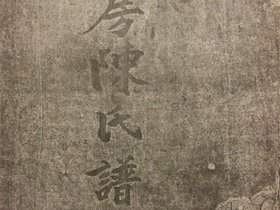 房陳氏譜